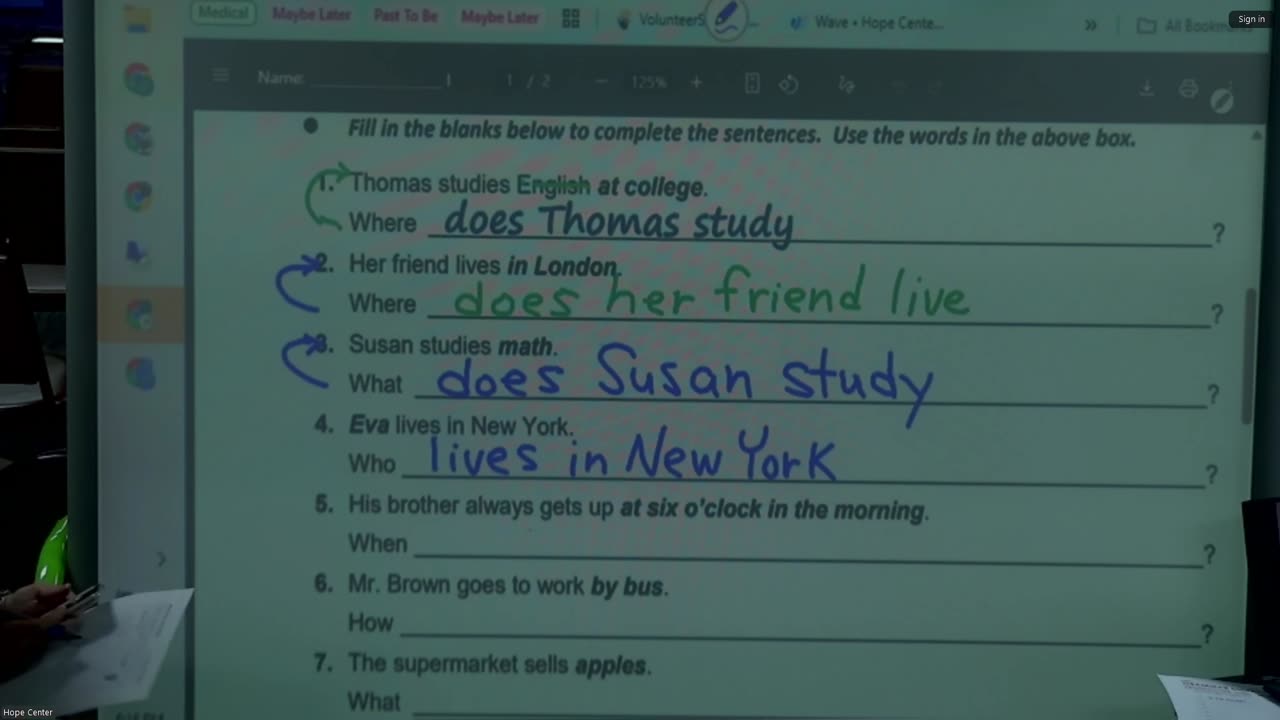 Sign in
Medical Maybe Later Past To Be Maybe Later Volunteer Wave • Hope Cente... » All Bookmarks
Name: 1 / 2 − 125% +
• Fill in the blanks below to complete the sentences. Use the words in the above box.
1. Thomas studies English at college.
Where does Thomas study ?
2. Her friend lives in London.
Where does her friend live ?
3. Susan studies math.
What does Susan study ?
4. Eva lives in New York.
Who lives in New York ?
5. His brother always gets up at six o'clock in the morning.
When ?
6. Mr. Brown goes to work by bus.
How ?
7. The supermarket sells apples.
What
Hope Center